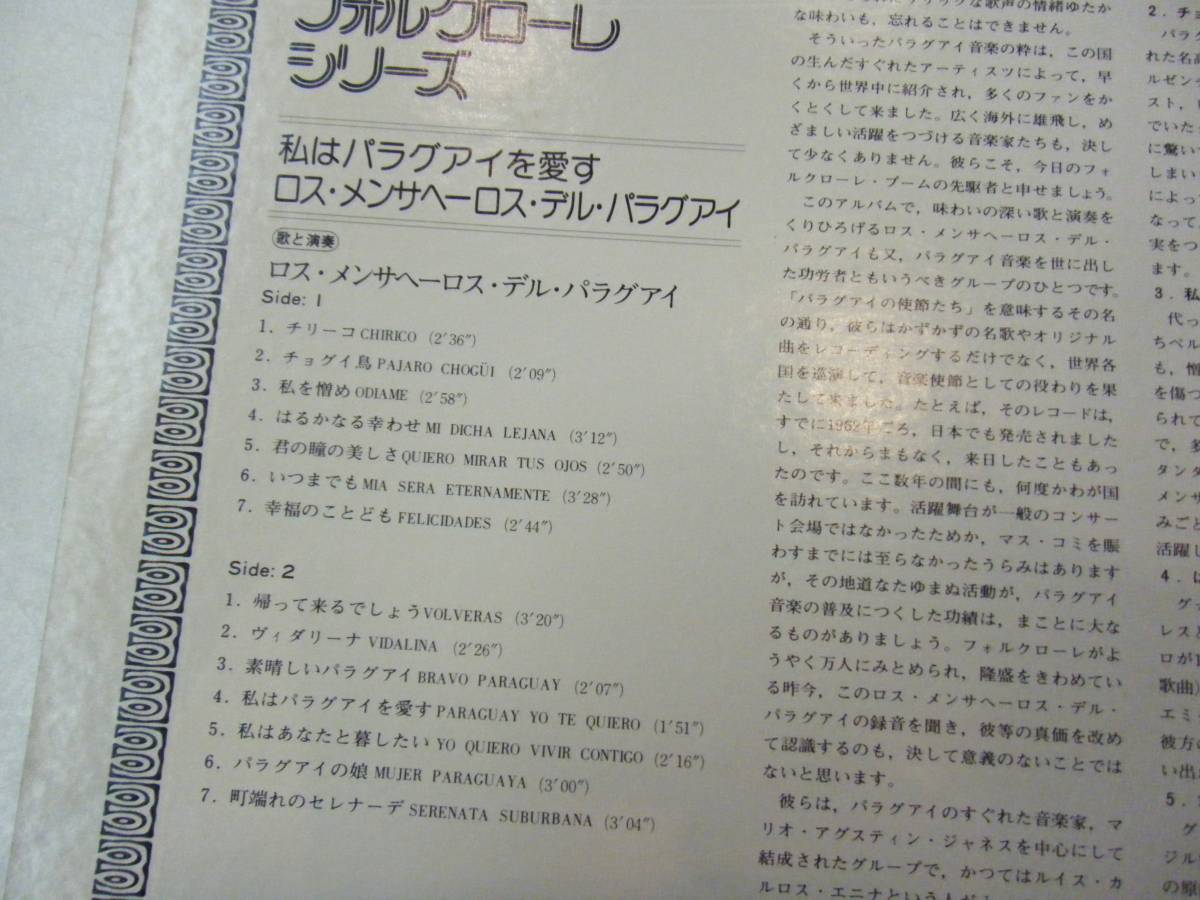 フォルクローレ
シリーズ
私はパラグアイを愛す
ロス・メンサヘーロス・デル・パラグアイ
歌と演奏
ロス・メンサヘーロス・デル・パラグアイ
Side: 1
1. チリーコ CHIRICO (2′36″)
2. チョグイ鳥 PAJARO CHOGÜI (2′09″)
3. 私を憎め ODIAME (2′58″)
4. はるかなる幸わせ MI DICHA LEJANA (3′12″)
5. 君の瞳の美しさ QUIERO MIRAR TUS OJOS (2′50″)
6. いつまでも MIA SERA ETERNAMENTE (3′28″)
7. 幸福のことども FELICIDADES (2′44″)
Side: 2
1. 帰って来るでしょう VOLVERAS (3′20″)
2. ヴィダリーナ VIDALINA (2′26″)
3. 素晴しいパラグアイ BRAVO PARAGUAY (2′07″)
4. 私はパラグアイを愛す PARAGUAY YO TE QUIERO (1′51″)
5. 私はあなたと暮したい YO QUIERO VIVIR CONTIGO (2′16″)
6. パラグアイの娘 MUJER PARAGUAYA (3′00″)
7. 町端れのセレナーデ SERENATA SUBURBANA (3′04″)
な歌声の情緒ゆたか
な味わいも，忘れることはできません。
そういったパラグアイ音楽の粋は，この国
の生んだすぐれたアーティスツによって，早
くから世界中に紹介され，多くのファンをか
くとくして来ました。広く海外に雄飛し，め
ざましい活躍をつづける音楽家たちも，決し
て少なくありません。彼らこそ，今日のフォ
ルクローレ・ブームの先駆者と申せましょう。
このアルバムで，味わいの深い歌と演奏を
くりひろげるロス・メンサヘーロス・デル・
パラグアイも又，パラグアイ音楽を世に出し
た功労者ともいうべきグループのひとつです。
「パラグアイの使節たち」を意味するその名
の通り，彼らはかずかずの名歌やオリジナル
曲をレコーディングするだけでなく，世界各
国を巡演して，音楽使節としての役わりを果
たして来ました。たとえば，そのレコードは，
すでに1952年ごろ，日本でも発売されました
し，それからまもなく，来日したこともあっ
たのです。ここ数年の間にも，何度かわが国
を訪れています。活躍舞台が一般のコンサー
ト会場ではなかったためか，マス・コミを賑
わすまでには至らなかったうらみはあります
が，その地道なたゆまぬ活動が，パラグアイ
音楽の普及につくした功績は，まことに大な
るものがありましょう。フォルクローレがよ
うやく万人にみとめられ，隆盛をきわめてい
る昨今，このロス・メンサヘーロス・デル・
パラグアイの録音を聞き，彼等の真価を改め
て認識するのも，決して意義のないことでは
ないと思います。
彼らは，パラグアイのすぐれた音楽家，マ
リオ・アグスティン・ジャネスを中心にして
結成されたグループで，かつてはルイス・カ
ルロス・エニナという人が
2. チョ
パラグ
れた名高
ルゼンチ
スト，
でいた
に驚い
しまい
によっ
なって
実をつ
ます。
3. 私
代っ
ちペル
も，憎
を傷つ
られて
で，多
タンダ
メンサ
みごと
活躍し
4. は
グ
レスと
ロが
歌曲）
エミ
彼方の
い出
5.
グ
ジル
の原